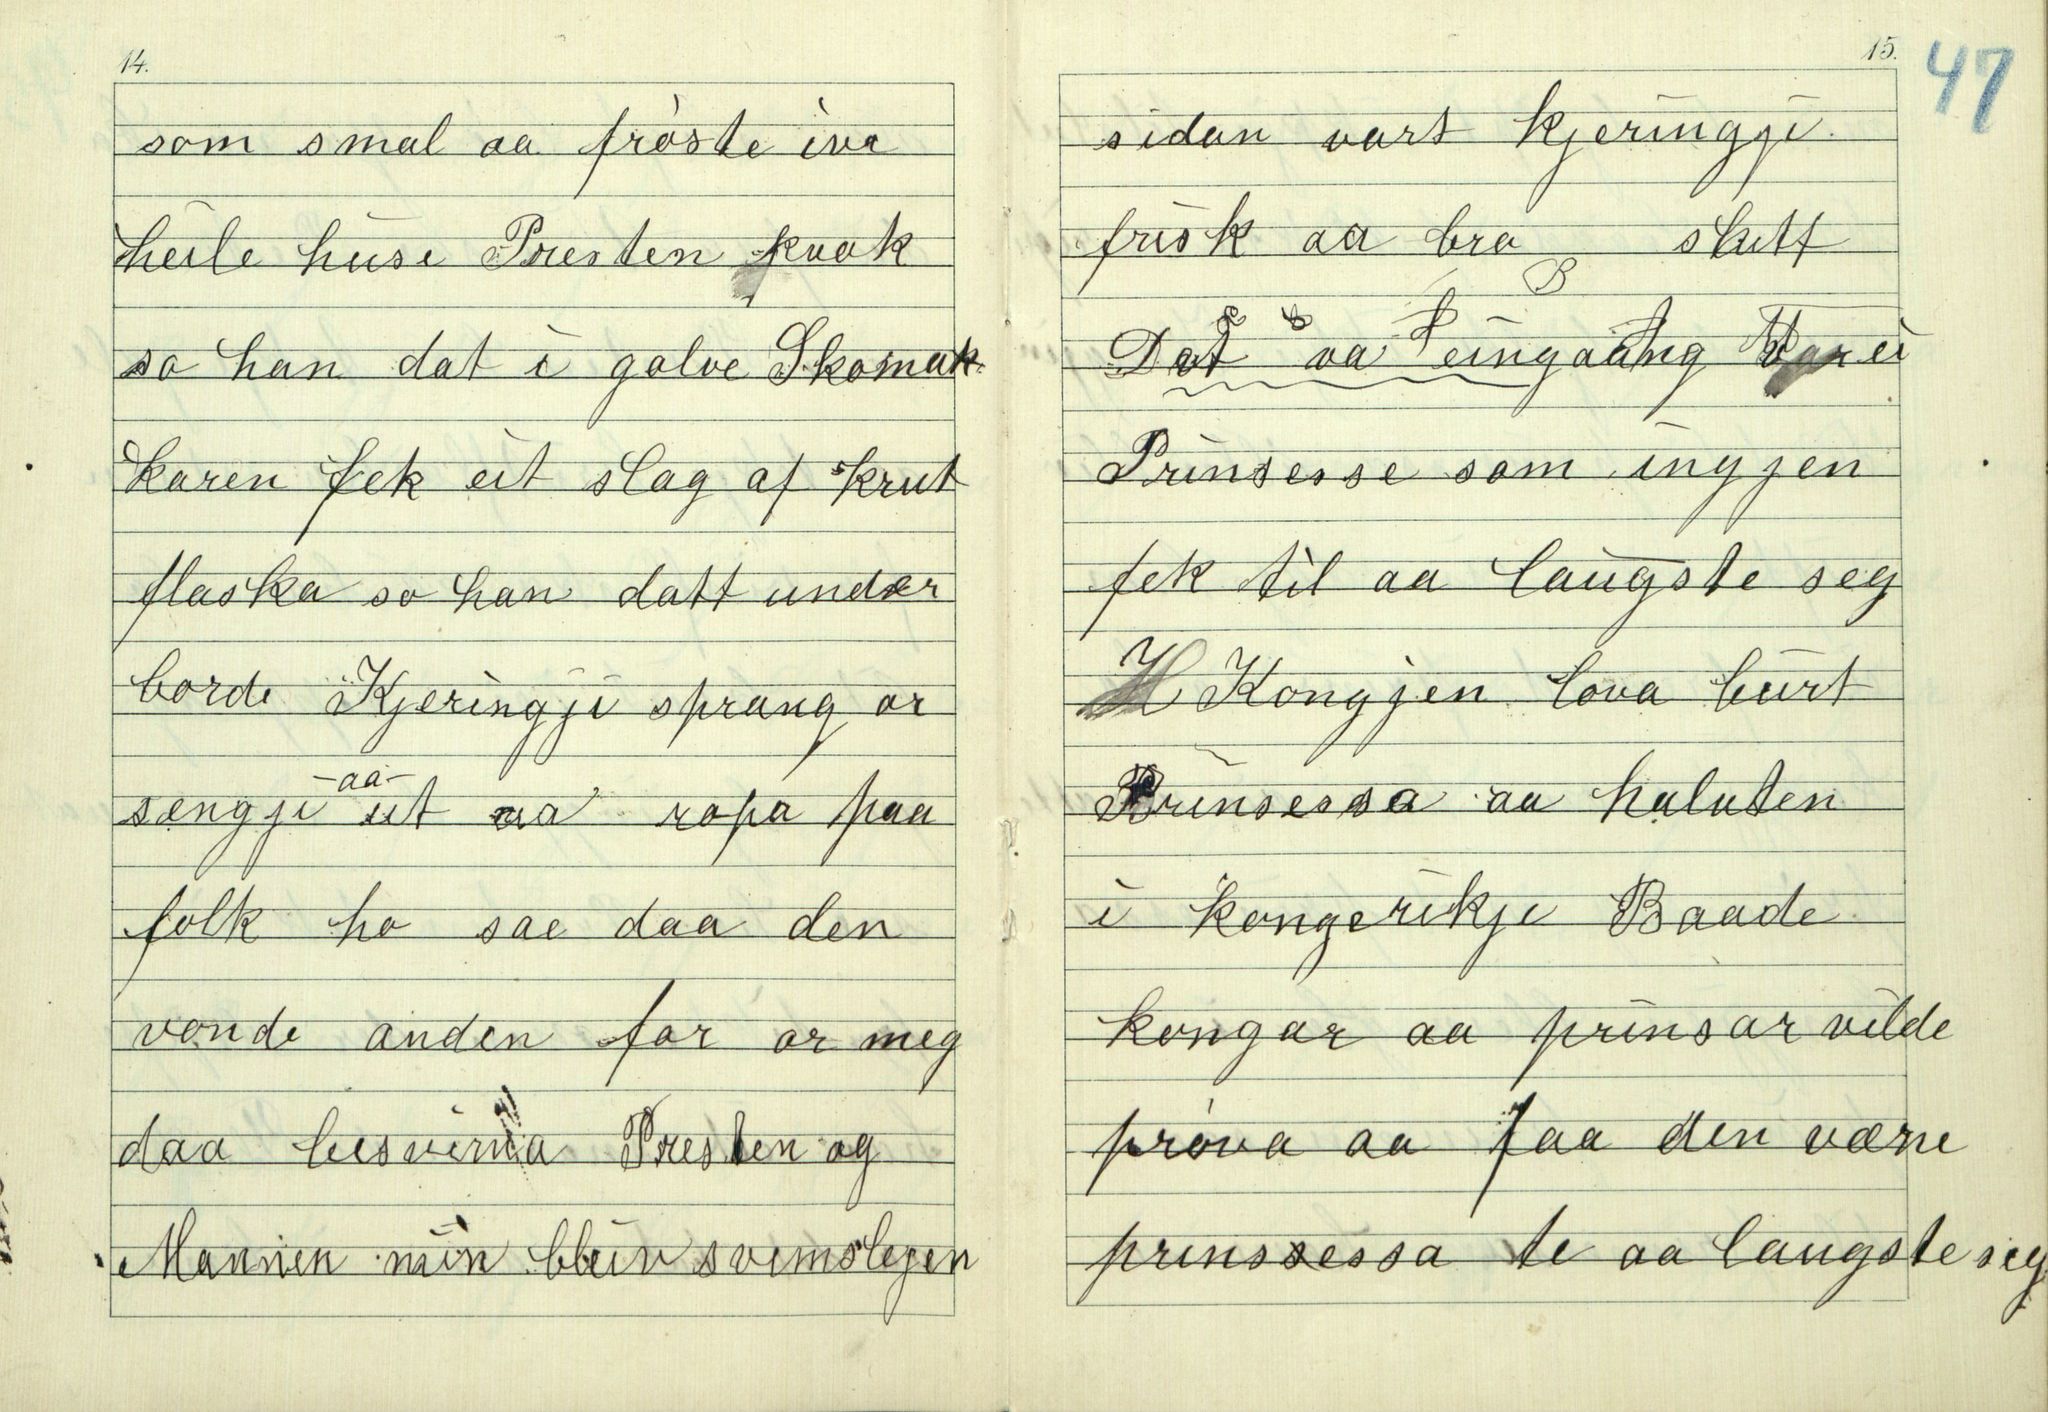 14.
som smal aa frøste iva
heile huse Presten kvak
so han dat i golve Skomak-
karen fek eit slag af krut
flaska so han datt under
borde Kjeringji sprang or
sengji -aa- ut aa ropa paa
folk ho sae daa den
vonde anden for or meg
daa besvima Presten og
Mannen min bleiv svimslegen
15.
47
sidan vart kjeringgi
frisk aa bra slutt
Det va eingaang ei
Prinsesse som ingjen
fek til aa laugste seg
Kongjen lova burt
Prinsessa aa haluten
i kongerikje Baade
kongar aa prinsar vilde
prøva aa faa den være
prinsessa te aa laugste seg